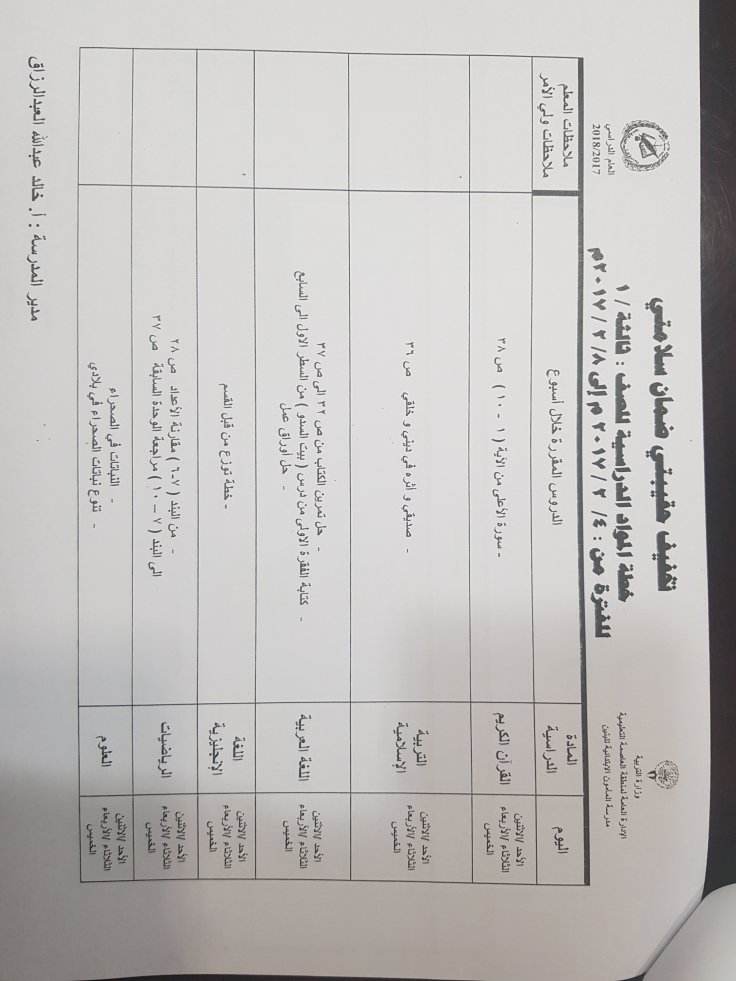 وزارة التربية
الإدارة العامة لمنطقة العاصمة التعليمية
مدرسة المأمون الابتدائية للبنين
العام الدراسي
2018/2017
تخفيف حقيبتي ضمان سلامتي
خطة المواد الدراسية للصف : ثالثة / ١
للفترة من : ٤/ ٢ / ٢٠١٧ م إلى ٨/ ٢ / ٢٠١٧ م
اليوم
المادة الدراسية
الدروس المقررة خلال أسبوع
ملاحظات المعلم
ملاحظات ولي الأمر
الأحد /الاثنين
الثلاثاء /الأربعاء
الخميس
القرآن الكريم
- سورة الأعلى من الآية ( ١ - ١٠ ) ص ٣٨
الأحد /الاثنين
الثلاثاء /الأربعاء
الخميس
التربية
الإسلامية
- صديقي و أثره في ديني و خلقي ص ٣٦
الأحد /الاثنين
الثلاثاء /الأربعاء
الخميس
اللغة العربية
- حل تمرين الكتاب من ص ٣٢ الى ص ٣٧
- كتابة الفقرة الاولى من درس ( بيت السدو ) من السطر الاول الى السابع
- حل أوراق عمل
الأحد /الاثنين
الثلاثاء /الأربعاء
الخميس
اللغة
الإنجليزية
- خطة توزع من قبل القسم
الأحد /الاثنين
الثلاثاء /الأربعاء
الخميس
الرياضيات
- من البند ( ٧-٦ ) مقارنة الأعداد ص ٢٨
الى البند ( ٧ – ١٠ ) مراجعة الوحدة السابقة ص ٣٧
الأحد /الاثنين
الثلاثاء /الأربعاء
الخميس
العلوم
- النباتات في الصحراء
- تنوع نباتات الصحراء في بلادي
مدير المدرسة : أ. خالد عبدالله العبدالرزاق